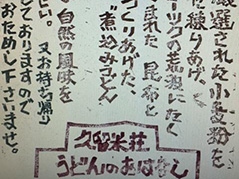 厳選された小麦粉を
練りあげ、
ーツクの荒波にたく
まれた 昆布を
つくりあげた、
"煮込みうどん"
自然の風味を
い。又お持ち帰り
ておりますので
おためし下さいませ。
久留米荘
うどんのおはなし